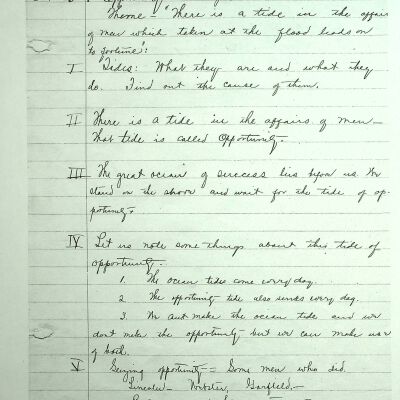 Theme - "There is a tide in the affairs
of men which taken at the flood leads on
to fortune":
I Tides: What they are and what they
do. Find out the cause of them.
II There is a tide in the affairs of men -
That tide is called Opportunity.
III The great ocean of success lies before us. We
stand on the shore and wait for the tide of op-
portunity.
IV Let us note some things about this tide of
opportunity.
1. The ocean tides come every day.
2 The opportunity tide also comes every day.
3. We don't make the ocean tide and we
dont make the opportunity but we can make use
of both.
V Seizing opportunity = Some men who did.
Lincoln - Webster, Garfield. -